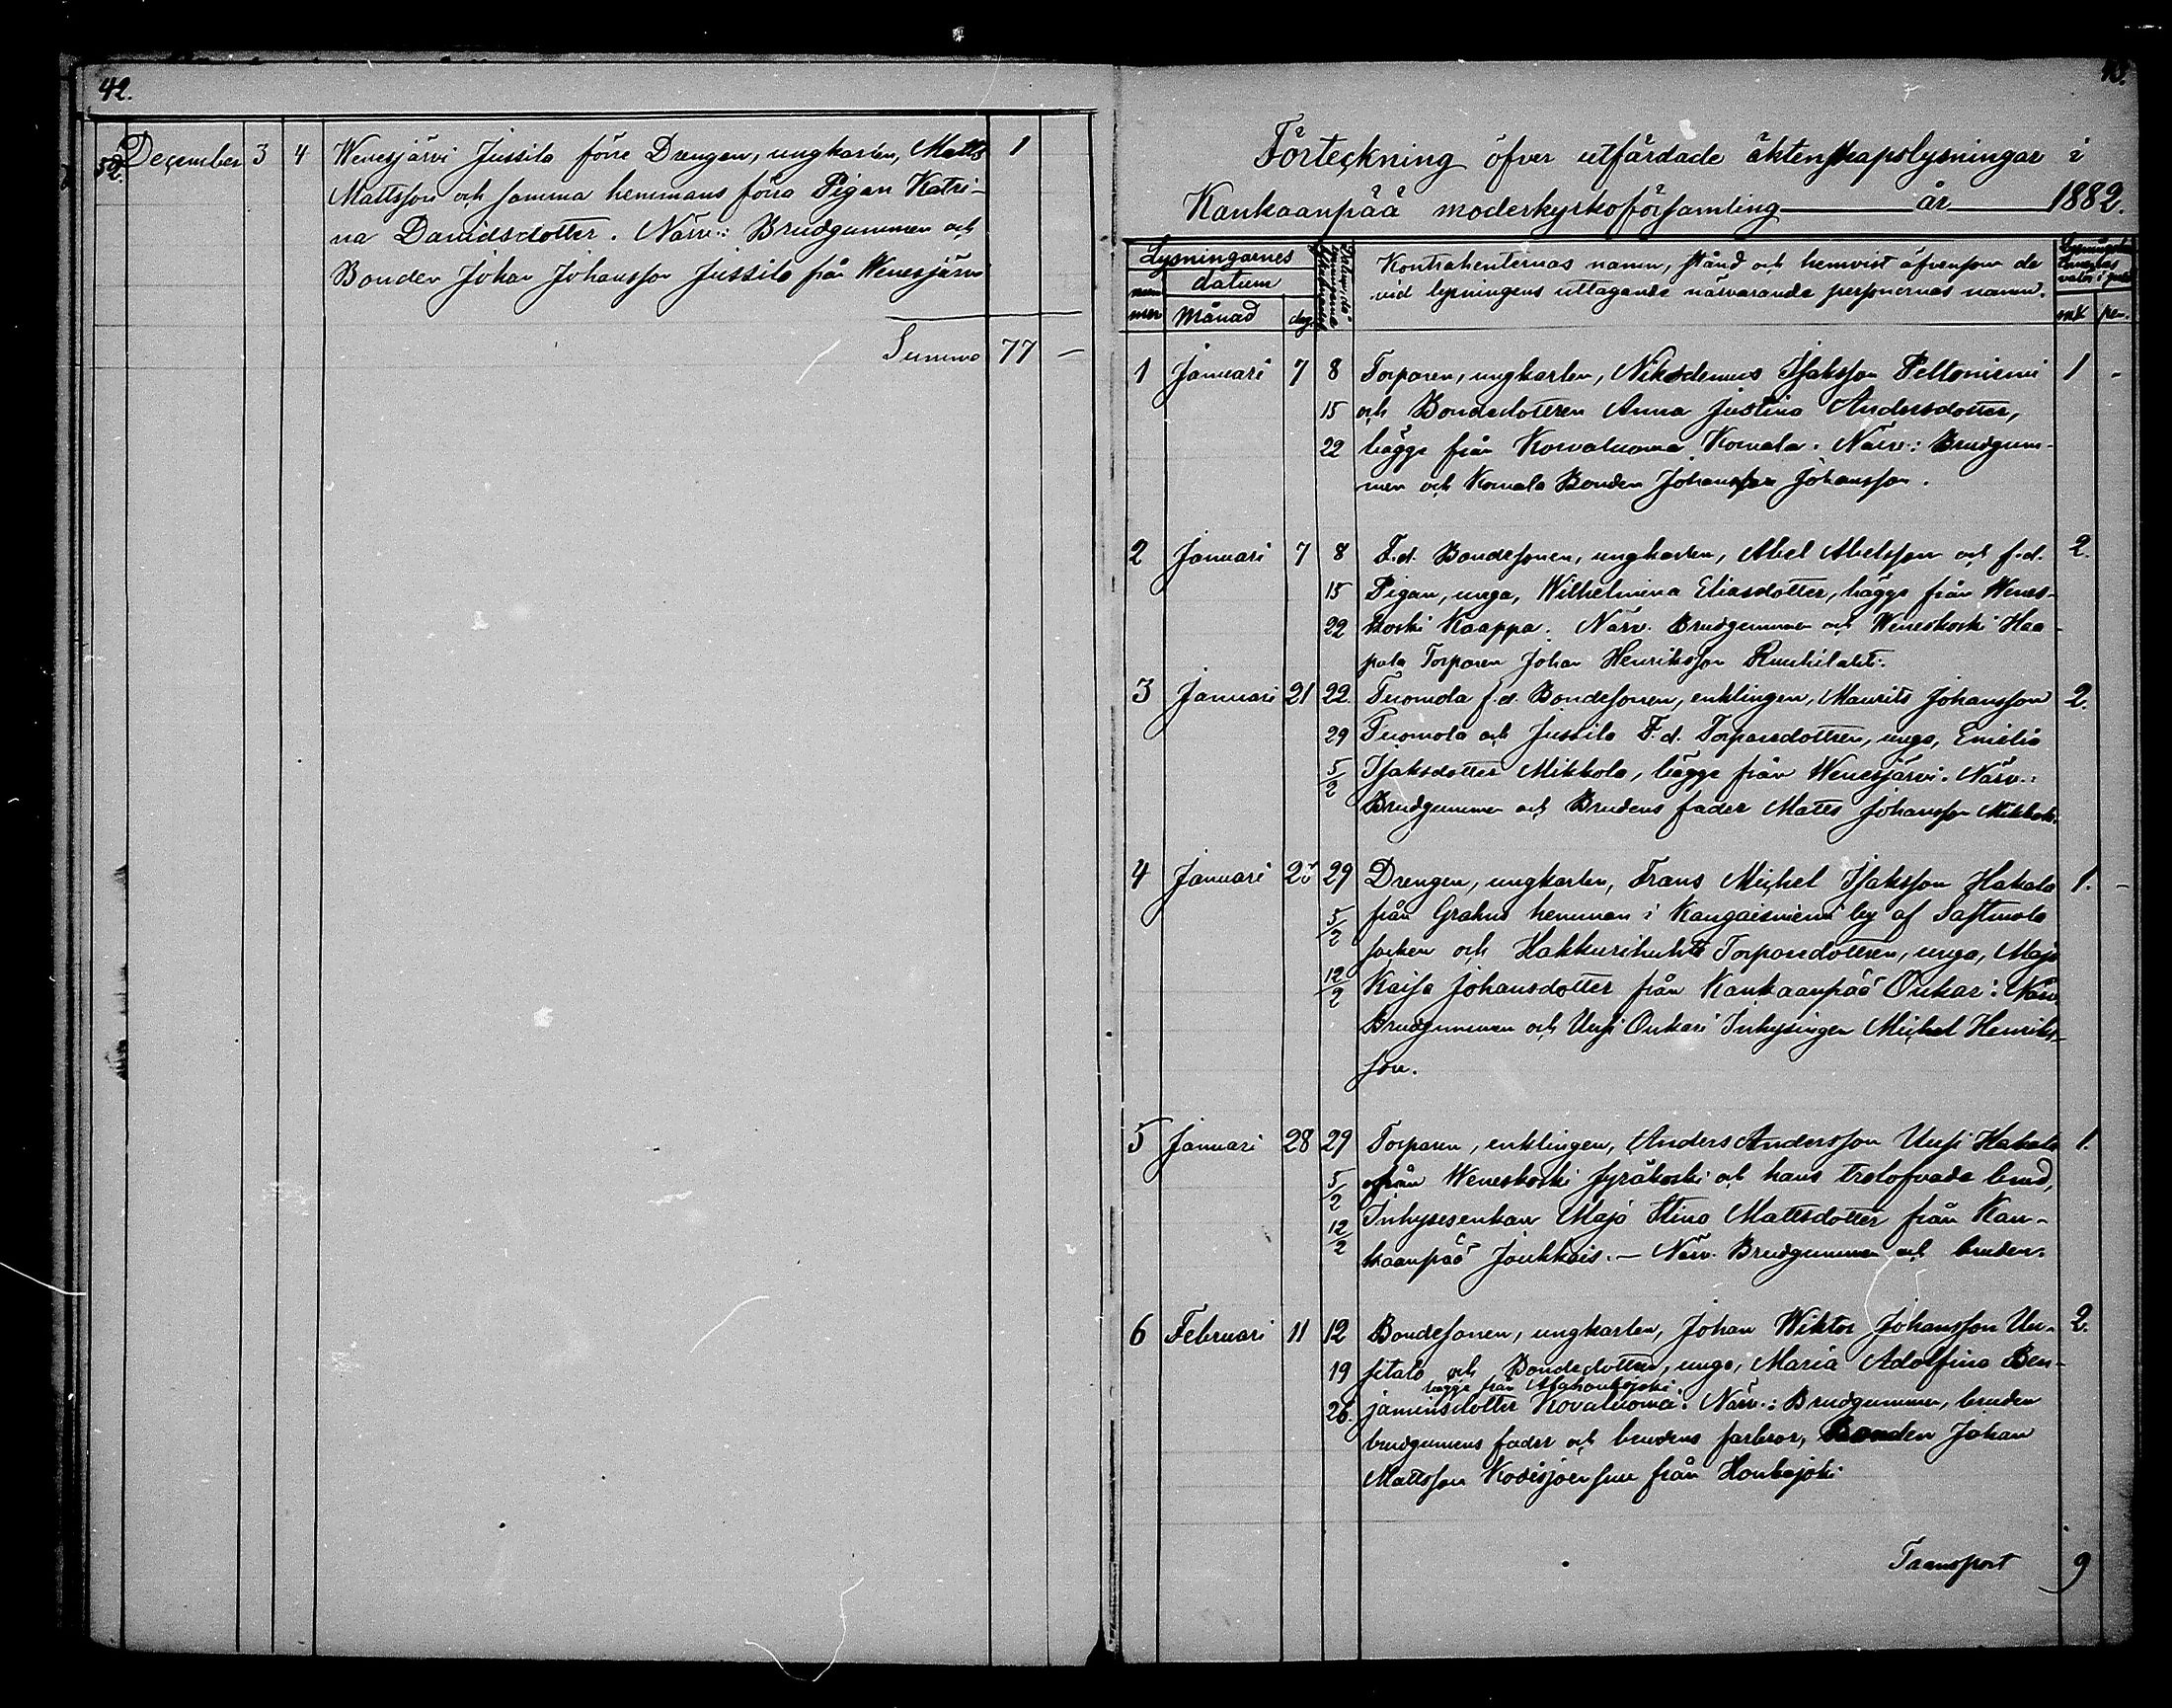 42.
52. December 3 4 Wenesjärvi Jussila förre Drengen, ungkarlen, Matts 1
Mattsson och samma hemmans förra Pigan Katri-
na Davidsdotter. Närv.: Brudgummen och
Bonden Johan Johansson Jussila från Wenesjärvi
Summa 77 —
43.
Förteckning öfver utfärdade äktenskapslysningar i
Kankaanpää moderkyrkoförsamling — år — 1882.
Lysningarnes
datum
num
mer Månad dag
Kontrahenternas namn, stånd och hemvist äfvensom de
vid lysningens uttagande närvarande personernas namn.
mk pn.
1 Januari 7 8 Torparen, ungkarlen, Nikodemus Isaksson Peltoniemi 1 -
15 och Bondedottren Anna Justina Andersdotter,
22 bägge från Korvaluoma Komala. Närv.: Brudgum-
men och Komala Bonden Johansson Johansson.
2 Januari 7 8 F.d. Bondesonen, ungkarlen, Abel Abelsson och f.d. 2.
15 Pigan, unga, Wilhelmina Eliasdotter, bägge från Wenes-
22 koski Kaappa. Närv. Brudgummen och Weneskoski Haa-
pala Torparen Johan Henriksson Ruuhilahti.
3 Januari 21 22. Tuomola f.d. Bondesonen, enklingen, Maurits Johansson 2.
29 Tuomola och Jussila F.d. Torparedottren, unga, Emilia
5/2 Isaksdotter Mikkola, bägge från Wenesjärvi. Närv.:
Brudgummen och Brudens fader Matts Johansson Mikkola.
4 Januari 28 29 Drengen, ungkarlen, Frans Michel Isaksson Hakala 1. -
5/2 från Grahns hemman i Kangaisniemi by af Sastmola
socken och Hakkurihuhta Torparedottren, unga, Maja
12/2 Kaisa Johansdotter från Kankaanpää Onkari: Närv.
Brudgummen och Uusi Onkari Inhysingen Michel Henriks-
son.
5 Januari 28 29 Torparen, enklingen, Anders Andersson Uusi Hakala 1.
5/2 från Weneskoski Jyräkoski och hans trolofvade brud,
12/2 Inhysesenkan Maja Stina Mattsdotter från Kan-
kaanpää Joukkais. — Närv. Brudgummen och bruden.
6 Februari 11 12 Bondesonen, ungkarlen, Johan Wiktor Johansson Uu- 2.
19 sitalo och Bondedottren, unga, Maria Adolfina Ben-
bägge från Alahonkajoki.
26. jaminsdotter Kovaluoma. Närv.: Brudgummen, bruden
brudgumens fader och brudens farbror, Bonden Johan
Mattsson från Honkajoki
Transport 9